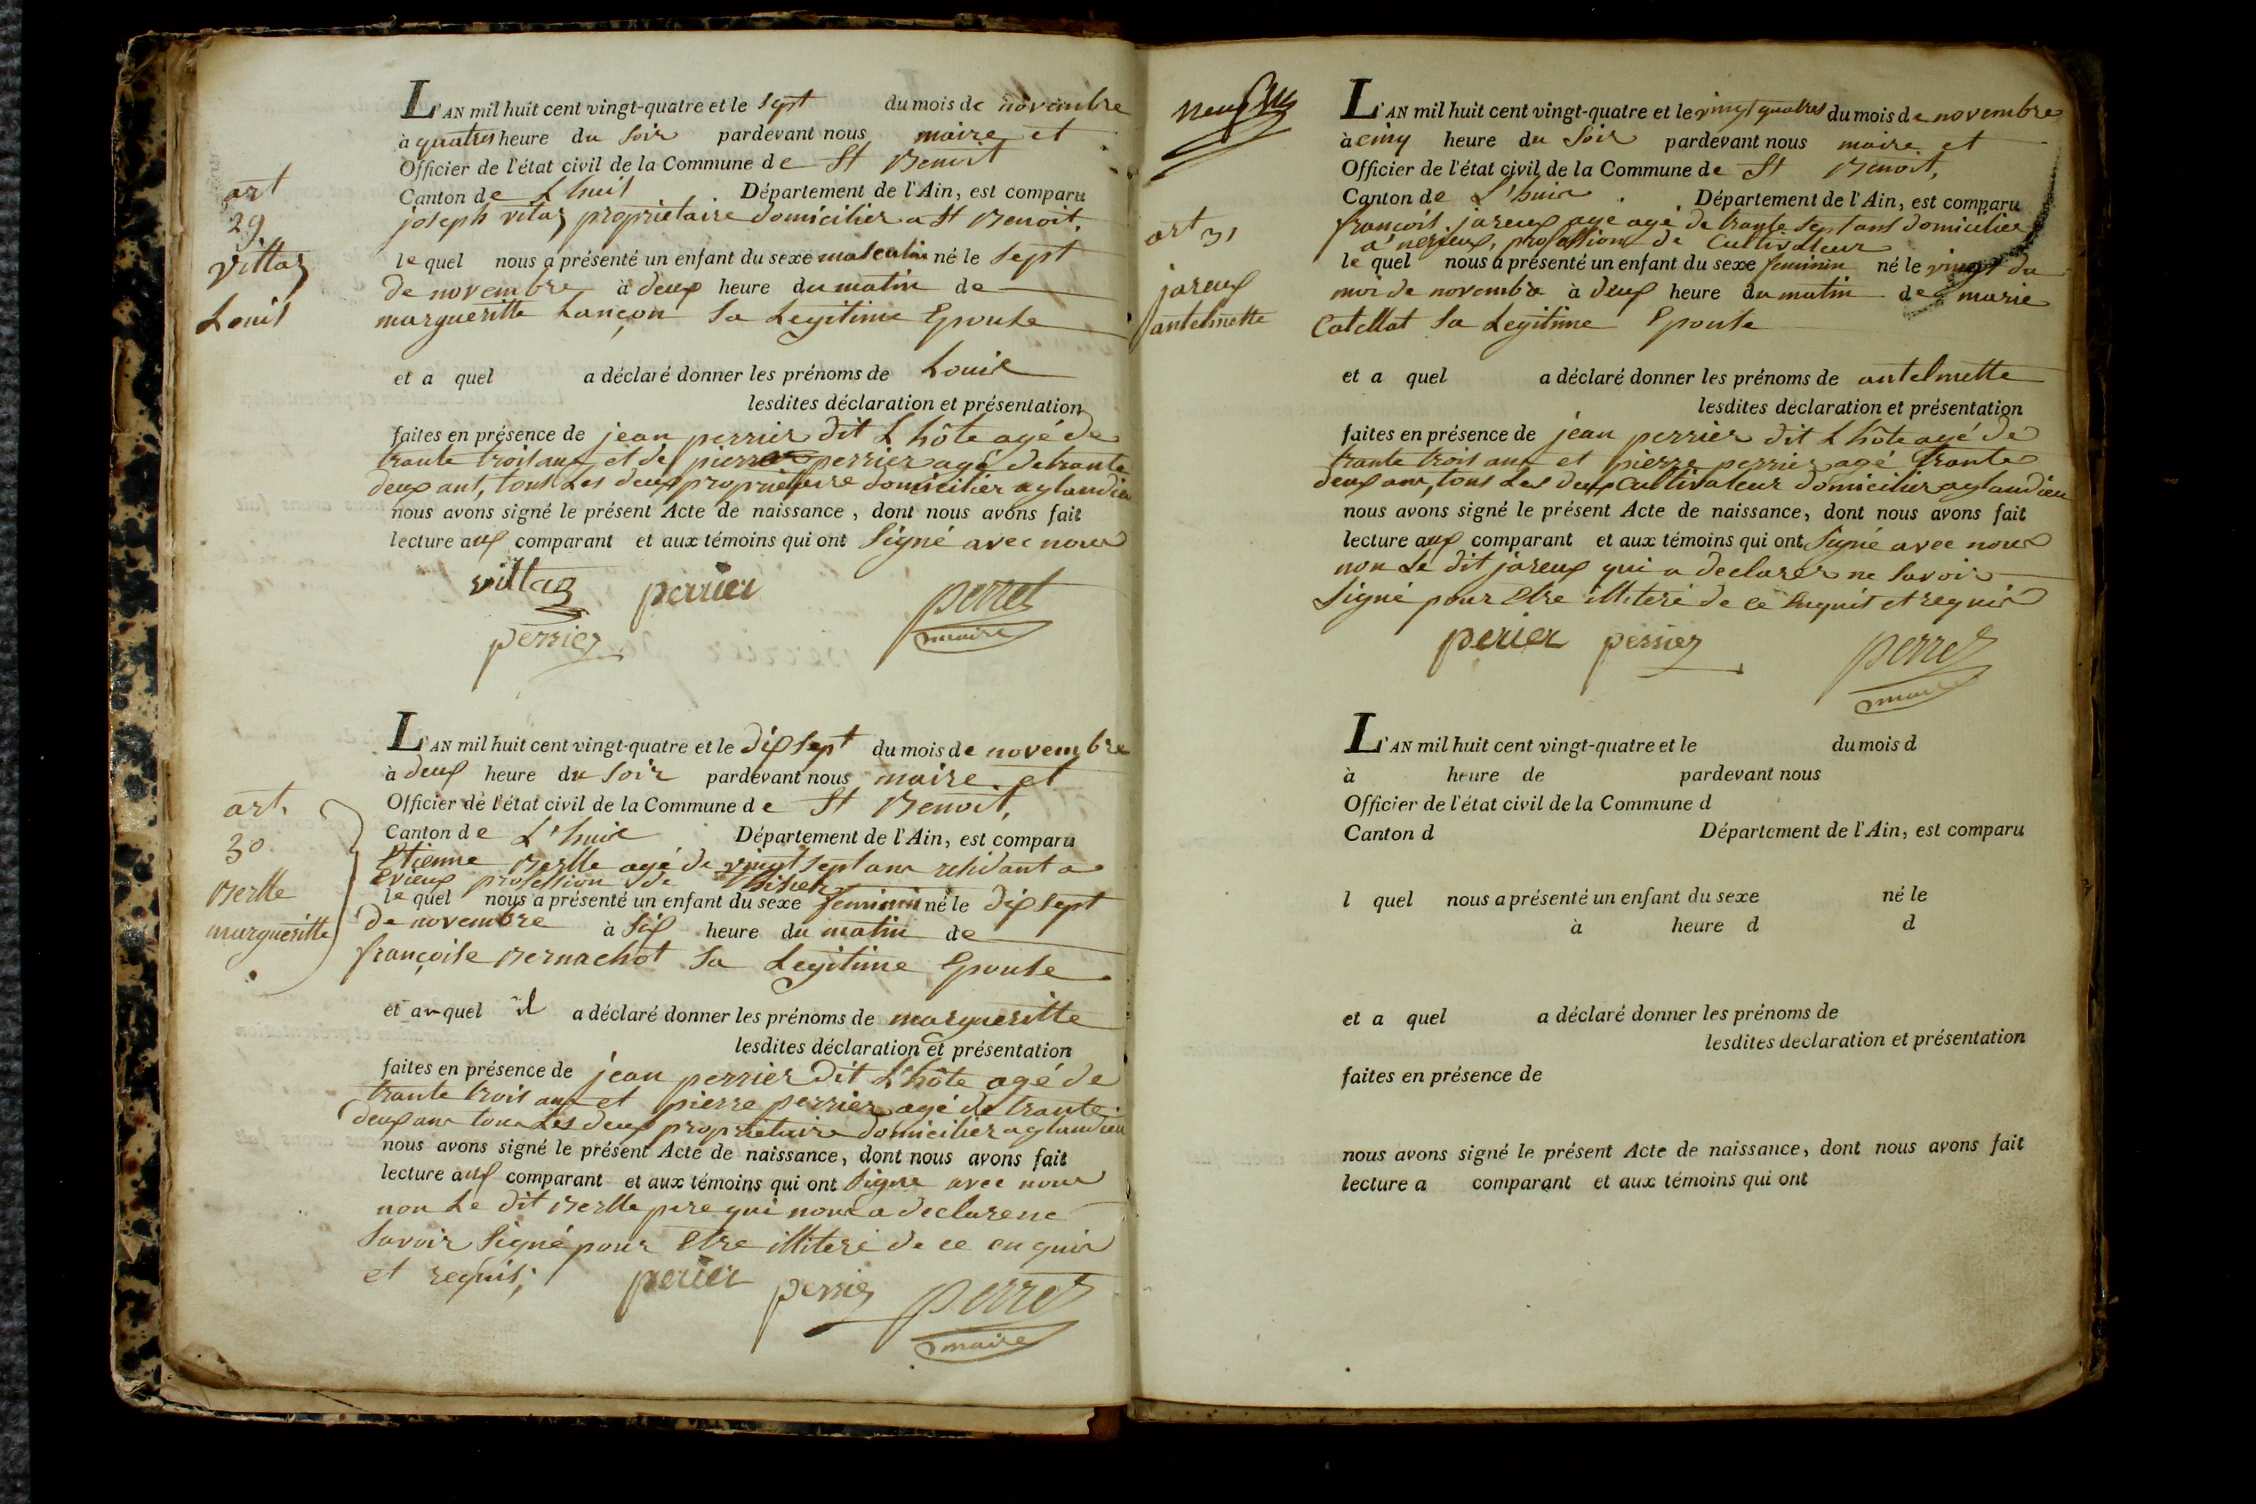 L'AN mil huit cent vingt-quatre et le sept du mois de novembre
à quatres heure du soir pardevant nous maire et
Officier de l'état civil de la Commune de St Benoit
Canton de L'huis Département de l'Ain, est comparu
art
29
Vittaz
Louis
joseph vitaz proprietaire domicilier a St Benoit,
le quel nous a présenté un enfant du sexe masculin né le sept
de novembre à deux heure du matin de
margueritte Lançon sa Legitime Epouse
et a quel a déclaré donner les prénoms de Louis
lesdites déclaration et présentation
faites en présence de jean perrier dit L'hôte agé de
trante trois ans et de pierre perrier agé de trante
deux ans, tous Les deux proprietaire domicilier a glandieu
nous avons signé le présent Acte de naissance, dont nous avons fait
lecture aux comparant et aux témoins qui ont Signé avec nous
vittaz perrier perret
maire
perrier
L'AN mil huit cent vingt-quatre et le dix sept du mois de novembre
à deux heure du soir pardevant nous maire et
Officier de l'état civil de la Commune de St Benoit,
Canton de L'huis Département de l'Ain, est comparu
art
30
Berlle
margueritte
Etienne Berlle agé de vingt sept ans residant a
Evieux profession de
le quel nous a présenté un enfant du sexe feminin né le dix sept
de novembre à six heure du matin de
françoise Bernachot sa Legitime Epouse
et auquel il a déclaré donner les prénoms de margueritte
lesdites déclaration et présentation
faites en présence de jean perrier dit L'hôte agé de
trante trois ans et pierre perrier agé de trante
deux ans tous Les deux proprietaire domicilier a glandieu
nous avons signé le présent Acte de naissance, dont nous avons fait
lecture aux comparant et aux témoins qui ont Signé avec nous
non Le dit Berlle pere qui nous a declare ne
savoir Signé pour Etre illiteré de ce enquis
et requis;
perier perrier perret
maire
neuf
L'AN mil huit cent vingt-quatre et le vingt quatres du mois de novembre
à cinq heure du Soir pardevant nous maire et
Officier de l'état civil de la Commune de St Benoit,
Canton de L'huis Département de l'Ain, est comparu
art 31
jareux
antelmette
françois jareux age agé de trante sept ans domicilier
a nerieux, profession de Cultivateur
le quel nous a présenté un enfant du sexe feminin né le vingt du
moi de novembre à deux heure du matin de marie
Catellat sa Legitime Epouse
et a quel a déclaré donner les prénoms de antelmette
lesdites déclaration et présentation
faites en présence de jean perrier dit L'hôte agé de
trante trois ans et pierre perrier agé trante
deux ans, tous Les deux Cultivateur domicilier a glandieu
nous avons signé le présent Acte de naissance, dont nous avons fait
lecture aux comparant et aux témoins qui ont Signé avec nous
non Le dit jareux qui a declarer ne Savoir
Signé pour Etre illiteré de ce Enquis et requis
perier perrier perret
maire
L'AN mil huit cent vingt-quatre et le du mois d
à heure de pardevant nous
Officier de l'état civil de la Commune d
Canton d Département de l'Ain, est comparu
l quel nous a présenté un enfant du sexe né le
à heure d d
et a quel a déclaré donner les prénoms de
lesdites déclaration et présentation
faites en présence de
nous avons signé le présent Acte de naissance, dont nous avons fait
lecture a comparant et aux témoins qui ont